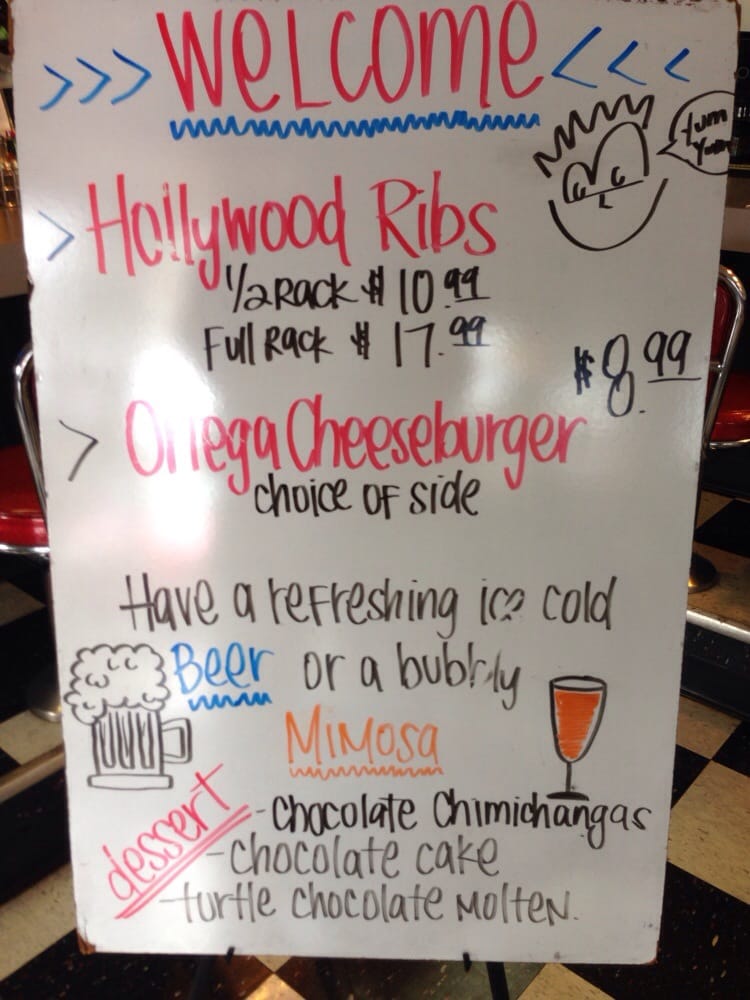 >>> WELCOME <<<
Yum
Yum
> Hollywood Ribs
1/2 Rack $10.99
Full Rack $17.99
$8.99
> Ortega Cheeseburger
choice of side
Have a refreshing ice cold
Beer or a bubbly
Mimosa
dessert
-Chocolate Chimichangas
-chocolate cake
-turtle chocolate Molten.